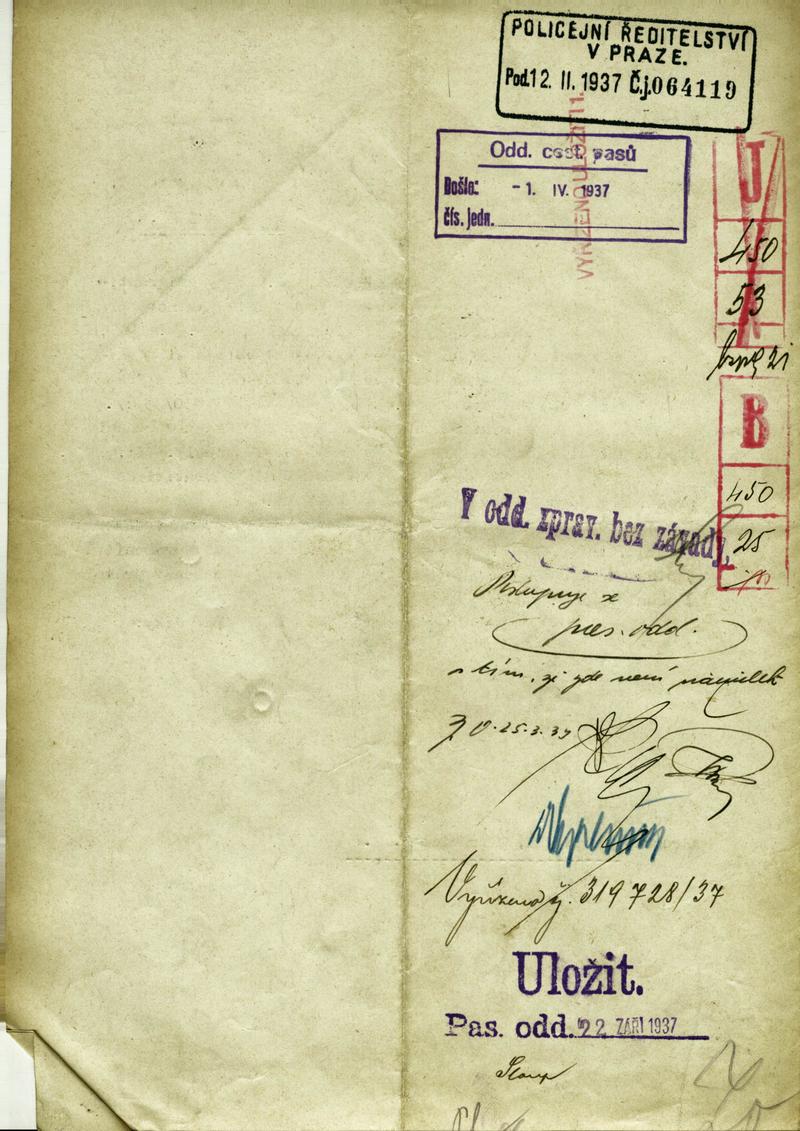 POLICEJNÍ ŘEDITELSTVÍ
V PRAZE.
Pod. 12. II. 1937 Č.j. 064119
Odd. cest. pasů
Došlo: - 1. IV. 1937
čís. jedn.
VYŘÍZENO ULOŽITI 1.
T
450
53
B
450
25
V odd. zprav. bez závady.
Postupuje se
pas. odd.
s tím, že zde není námitek
25.3.37
Vyřízeno č. 319728/37
Uložit.
Pas. odd. 22 ZÁŘÍ 1937